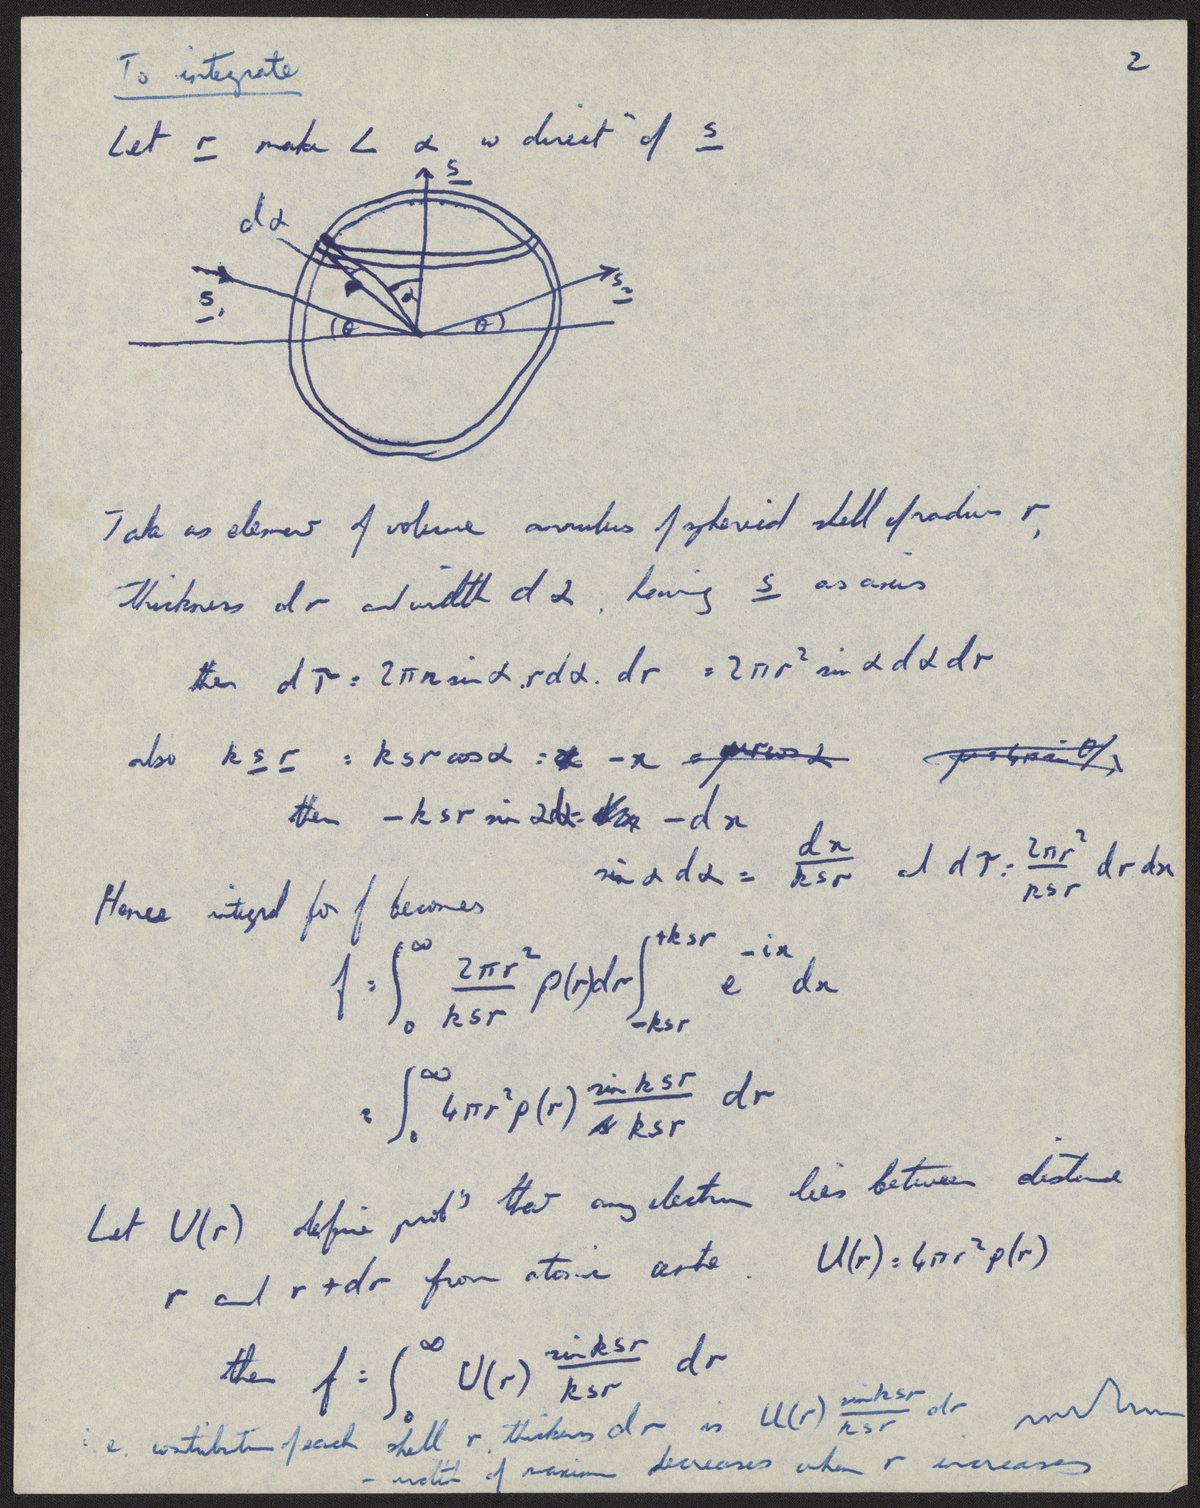 2
To integrate
Let r make ∠ α w directⁿ of s
s
dα
α
s₁
s₂
θ
θ
Take as element of volume annulus of spheroid shell of radius r,
thickness dr and width dα, having s as axis
then dτ = 2πr sin α . r dα . dr = 2πr² sin α dα dr
also k s r = ksr cos α = -x = μr cos α
then -ksr sin α dα = -dx
sin α dα = dx/ksr and dτ = 2πr²/ksr dr dx
Hence integral for f becomes
f = ∫₀^∞ 2πr²/ksr ρ(r) dr ∫_{-ksr}^{+ksr} e^{-ix} dx
= ∫₀^∞ 4πr² ρ(r) sin ksr/ksr dr
Let U(r) define probʸ that any electron lies between distance
r and r + dr from atomic centre. U(r) = 4πr² ρ(r)
then f = ∫₀^∞ U(r) sin ksr/ksr dr
i.e. contribution of each shell r, thickness dr is U(r) sin ksr/ksr dr
- width of maximum decreases when r increases